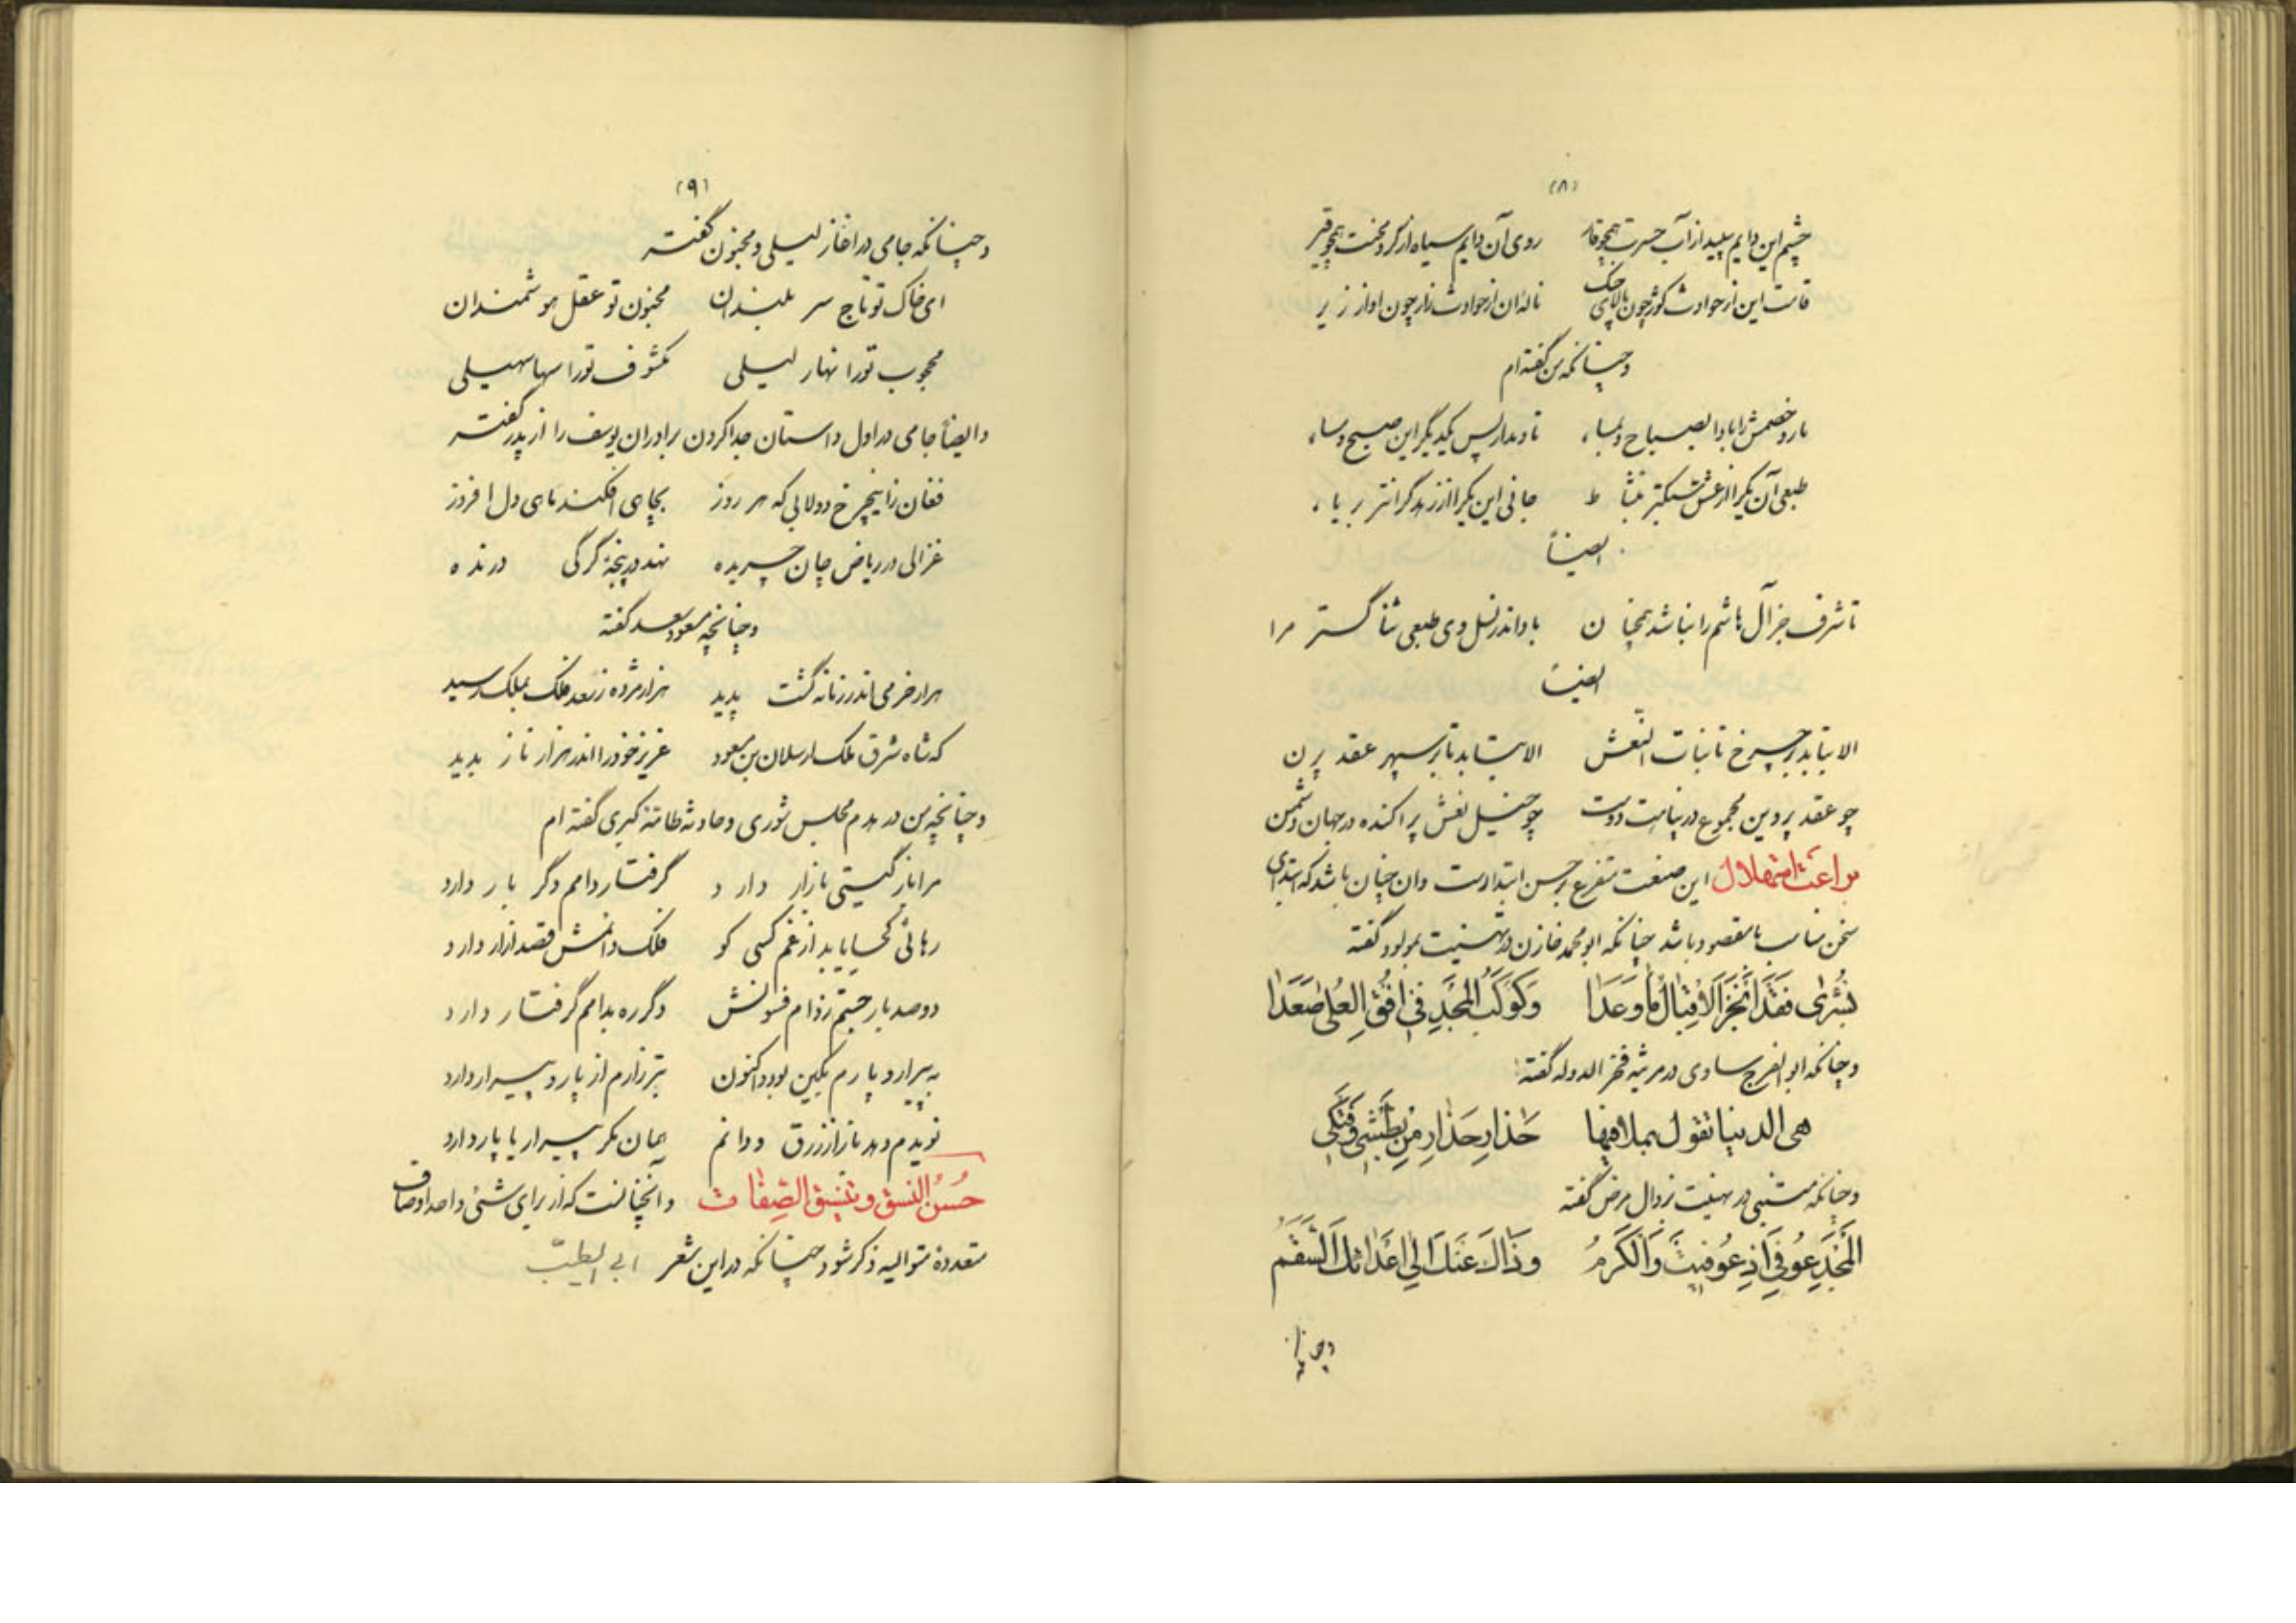 (۸)
چشم این دایم سپید از آب حسرت همچو قار روی آن دایم سیاه از گرد محنت همچو قیر
قامت این از حوادث کوژ چون بالای چنگ ناله ان از حوادث زار چون اواز زیر
و چنانکه من گفته‌ام
یار و خصمش را بادا بصباح و بمساء تا در پس یکدیگر این صبح و مساء
طبعی آن یکرا از غش سبکتر بنشاط جانی این یکرا از زهد گرانتر بریاء
ایضاً
تا شرف جز آل هاشم را نباشد همچنان باد اندر نسل وی طبعی ثنا گستر مرا
ایضاً
الا بتابد بر چرخ تا بنات النّعش الا بتابد تا بر سپهر عقد پرن
چو عقد پروین مجموع در پناهت دوست چو خیل نعش پراکنده در جهان دشمن
براعت استهلال این صنعت متفرع بر حسن ابتداست و ان چنان باشد که ابتدای
سخن مناسب با مقصود باشد چنانکه ابو محمد خازن در تهنیت بمولود گفته
بُشْرٰی فَقَدْ اَنْجَزَ الْاِقْبٰالُ مٰا وَعَدٰا وَ کَوْکَبُ الْمَجْدِ فِی اُفُقِ الْعُلیٰ صَعَدٰا
و چنانکه ابو الفرج ساوی در مرثیه فخر الدوله گفته
هی الدنیا تقول بملأ فیها حَذارِ حَذارِ مِنْ بَطْشِی وَ فَتْکِی
و چنانکه متنبی در تهنیت زوال مرض گفته
اَلْمَجْدُ عُوفِیَ اِذْ عُوفیتَ وَ الْکَرَمُ وَ زٰالَ عَنْکَ اِلٰی اَعْدٰائِکَ السَّقَمُ
(۹)
و چنانکه جامی در اغاز لیلی و مجنون گفته
ای خاک تو تاج سر بلندان مجنون تو عقل هوشمندان
محجوب تو را نهار لیلی مکشوف تو را سها سهیلی
و ایضاً جامی در اول داستان جدا کردن برادران یوسف را از پدر گفته
فغان زاینچرخ دولابی که هر روز بچاهی افکند ماهی دل افروز
غزالی در ریاض جان چریده نهد در پنجهٔ گرگی درنده
و چنانچه مسعود سعد گفته
هزار خرمی اندر زمانه گشت پدید هزار مژده ز سعد فلک بملک رسید
که شاه شرق ملک ارسلان بن مسعود عزیز خود را اندر هزار ناز بدید
و چنانچه من در هدم مجلس شوری و حادثه طامّه کبری گفته ام
مرا باز گیتی بازار دارد گرفتار دامم دگر بار دارد
رهائی کجا یابد از غم کسی کو فلک دائمش قصد ازار دارد
دو صد بار جستم ز دام فسونش دگر ره بدامم گرفتار دارد
به پیرار و پارم بکین بود و اکنون بتر زارم از پار و پیرار دارد
نویدم دهد باز از زرق و دانم همان مکر پیرار یا پار دارد
حُسْنُ النسق و تنسیق الصِّفات و آنچنانست که از برای شئی واحد اوصاف
متعدده متوالیه ذکر شود چنانکه در این شعر ابی الطیّب